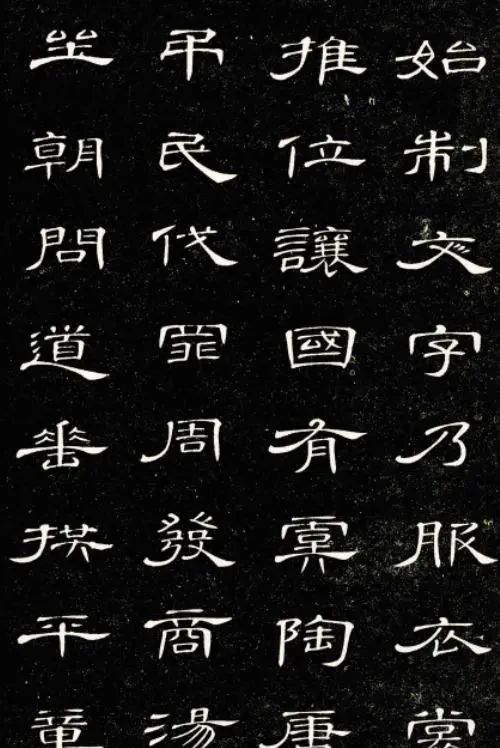 始制文字乃服衣裳
推位讓國有虞陶唐
弔民伐罪周發商湯
坐朝問道垂拱平章